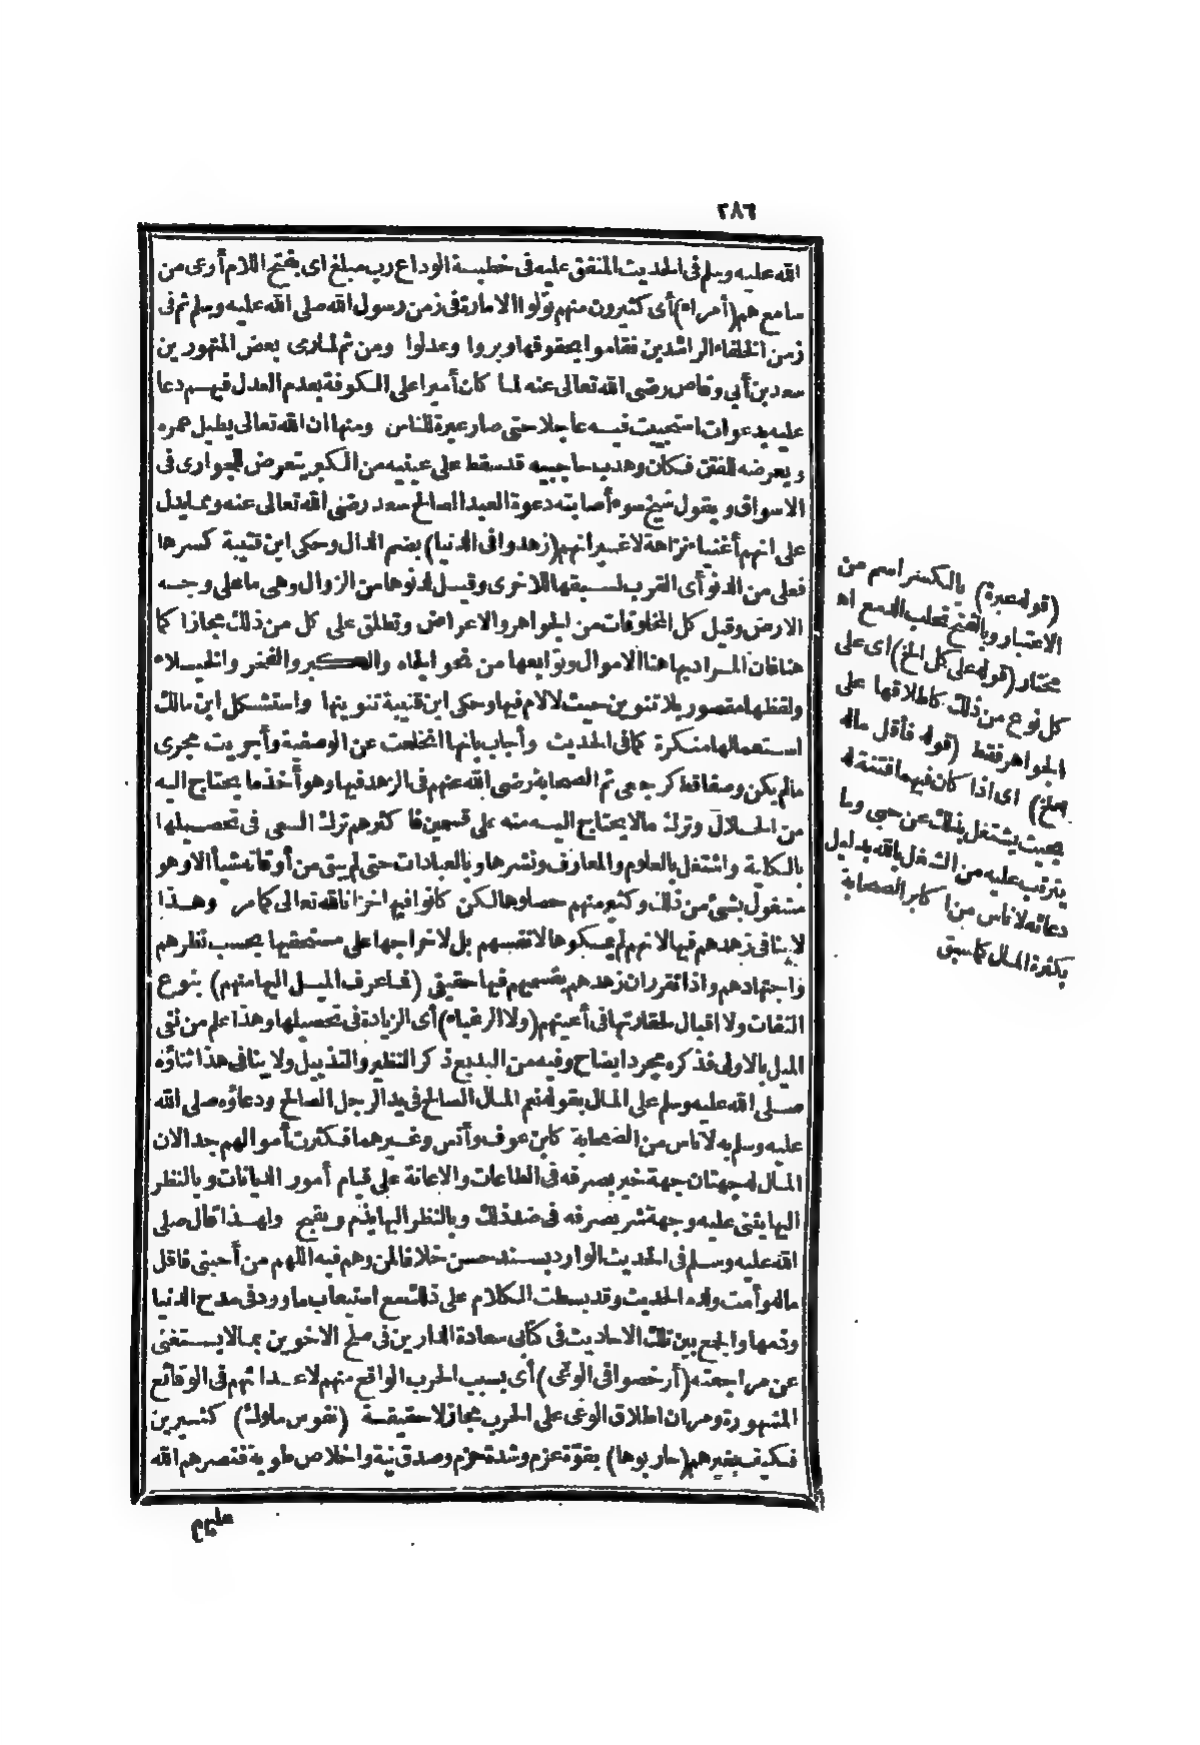 ٢٨٦
الله عليه وسلم فى الحديث المتفق عليه فى خطبة الوداع رب مبلغ اى بفتح اللام أوعى من
سامع هم (أمراء) أى كثيرون منهم تولوا الامارة فى زمن رسول الله صلى الله عليه وسلم ثم فى
زمن الخلفاء الراشدين فقاموا بحقوقها وبروا وعدلوا ومن ثم لما رمى بعض المتهورين
سعد بن أبى وقاص رضى الله تعالى عنه لما كان أميرا على الكوفة بعدم العدل فيهم دعا
عليه بدعوات استجيبت فيه عاجلا حتى صار عبرة للناس ومنها ان الله تعالى يطيل عمره
ويعرضه للفتن فكان وهدب حاجبيه قد سقط على عينيه من الكبر يتعرض للجوارى فى
الاسواق ويقول شيخ سوء أصابته دعوة العبد الصالح سعد رضى الله تعالى عنه ومما يدل
على انهم أغنياء نزاهة لا غير انهم (زهدوا فى الدنيا) بضم الدال وحكى ابن قتيبة كسرها
فعلى من الدنو أى القرب لسبقها للاخرى وقيل لدنوها من الزوال وهى ما على وجه
الارض وقيل كل المخلوقات من الجواهر والاعراض وتطلق على كل من ذلك مجازا كما
هنا فان المراد بها هنا الاموال وتوابعها من نحو الجاه والكبر والفخر والخيلاء
ولفظها مقصور بلا تنوين حيث لا لام فيها وحكى ابن قتيبة تنوينها واستشكل ابن مالك
استعمالها منكرة كما فى الحديث وأجاب بانها انخلعت عن الوصفية وأجريت مجرى
ما لم يكن وصفا قط كرجعى ثم الصحابة رضى الله عنهم فى الزهد فيها وهو أخذ ما يحتاج اليه
من الحلال وترك ما لا يحتاج اليه منه على قسمين فاكثرهم ترك السعى فى تحصيلها
بالكلية واشتغل بالعلوم والمعارف ونشرها وبالعبادات حتى لم يبق من أوقاته شيأ الا وهو
مشغول بشئ من ذلك وكثير منهم حصلوها لكن كانوا فيها خزانا لله تعالى كما مر وهذا
لا ينافى زهدهم فيها لانهم لم يمسكوها لانفسهم بل لاخراجها على مستحقيها بحسب نظرهم
واجتهادهم واذا تقرر ان زهدهم بقسميهم فيها حقيقى (فما عرف الميل اليها منهم) بنوع
التفات ولا اقبال لحقارتها فى أعينهم (ولا الرغباء) أى الزيادة فى تحصيلها وهذا علم من نفى
الميل بالاولى فذكره مجرد ايضاح وفيه من البديع ذكر النظير والتذييل ولا ينافى هذا ثناؤه
صلى الله عليه وسلم على المال بقوله نعم المال الصالح فى يد الرجل الصالح ودعاؤه صلى الله
عليه وسلم به لاناس من الصحابة كابن عوف وأنس وغيرهما فكثرت أموالهم جدا لان
المال له جهتان جهة خير بصرفه فى الطاعات والاعانة على قيام أمور الديانات وبالنظر
اليها يثنى عليه وجهة شر بصرفه فى ضد ذلك وبالنظر اليها يذم ويقبح ولهذا قال صلى
الله عليه وسلم فى الحديث الوارد بسند حسن خلافا لمن وهم فيه اللهم من أحبنى فاقل
ماله وأمت ولده الحديث وقد بسطت الكلام على ذلك مع استيعاب ما ورد فى مدح الدنيا
وذمها والجمع بين تلك الاحاديث فى كتابى سعادة الدارين فى صلح الاخوين بما لا يستغنى
عن مراجعته (أرخصوا فى الوغى) أى بسبب الحرب الواقع منهم لاعدائهم فى الوقائع
المشهورة ومر ان اطلاق الوغى على الحرب مجاز لا حقيقة (نفوس ملوك) كثيرين
فكيف بغيرهم (حاربوها) بقوة عزم وشدة حزم وصدق نية واخلاص طوية فنصرهم الله
عليهم
(قوله عبرة) بالكسر اسم من
الاعتبار وبالفتح تحلب الدمع اه
مختار (قوله على كل الخ) اى على
كل نوع من ذلك كاطلاقها على
الجواهر فقط (قوله فأقل ماله
الخ) اى اذا كان فيها فتنة له
بحيث يشتغل بذلك عن حبى وما
يترتب عليه من الشغل بالله بدليل
دعائه لاناس من اكابر الصحابة
بكثرة المال كما سبق